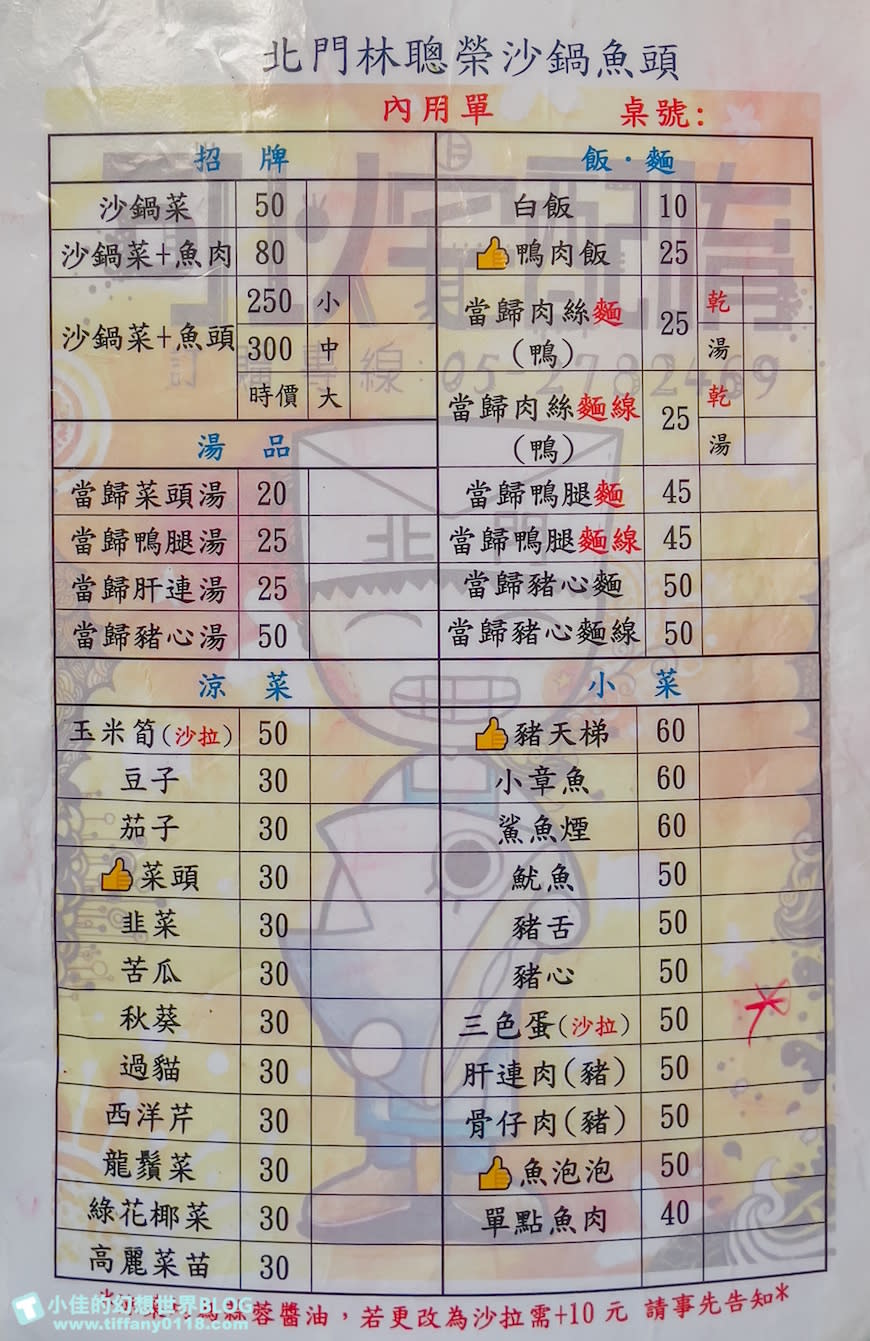 北門林聰榮沙鍋魚頭
內用單 桌號:
招牌
沙鍋菜 50
沙鍋菜+魚肉 80
沙鍋菜+魚頭
250 小
300 中
時價 大
湯品
當歸菜頭湯 20
當歸鴨腿湯 25
當歸肝連湯 25
當歸豬心湯 50
飯·麵
白飯 10
鴨肉飯 25
當歸肉絲麵
(鴨)
25 乾
湯
當歸肉絲麵線
(鴨)
25 乾
湯
當歸鴨腿麵 45
當歸鴨腿麵線 45
當歸豬心麵 50
當歸豬心麵線 50
涼菜
玉米筍(沙拉) 50
豆子 30
茄子 30
菜頭 30
韭菜 30
苦瓜 30
秋葵 30
過貓 30
西洋芹 30
龍鬚菜 30
綠花椰菜 30
高麗菜苗 30
小菜
豬天梯 60
小章魚 60
鯊魚煙 60
魷魚 50
豬舌 50
豬心 50
三色蛋(沙拉) 50
肝連肉(豬) 50
骨仔肉(豬) 50
魚泡泡 50
單點魚肉 40
蓉醬油，若更改為沙拉需+10元 請事先告知*
可以宅配喔
訂購專線:05-2782469
北門
小佳的幻想世界BLOG
www.tiffany0118.com